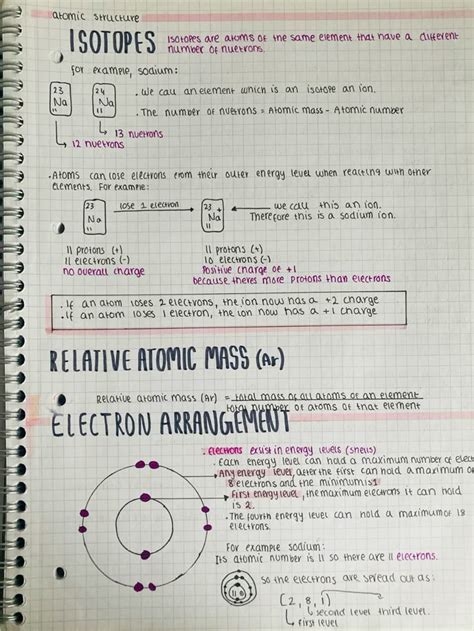 atomic structure
ISOTOPES
Isotopes are atoms of the same element that have a different
number of nuetrons.
for example, sodium:
23
Na
11
24
Na
11
. We call an element which is an isotope an ion.
. The number of nuetrons = Atomic mass - Atomic number
13 nuetrons
12 nuetrons
. Atoms can lose electrons from their outer energy level when reacting with other
elements. For example:
23
Na
11
lose 1 electron
23 +
Na
11
we call this an ion.
Therefore this is a sodium ion.
11 protons (+)
11 electrons (-)
no overall charge
11 protons (+)
10 electrons (-)
Positive charge of +1
because theres more protons than electrons
. If an atom loses 2 electrons, the ion now has a +2 charge
. If an atom loses 1 electron, the ion now has a +1 charge
RELATIVE ATOMIC MASS (Ar)
Relative atomic mass (Ar) = total mass of all atoms of an element
total number of atoms of that element
ELECTRON ARRANGEMENT
. Electrons exist in energy levels (shells)
. Each energy level can hold a maximum number of elect
Any energy level, after the first can hold a maximum of
8 electrons and the minimum is 1
First energy level, the maximum electrons it can hold
is 2.
. The fourth energy level can hold a maximum of 18
electrons.
For example sodium:
Its atomic number is 11 so there are 11 electrons.
so the electrons are spread out as:
(2,8,1)
second level third level.
first level